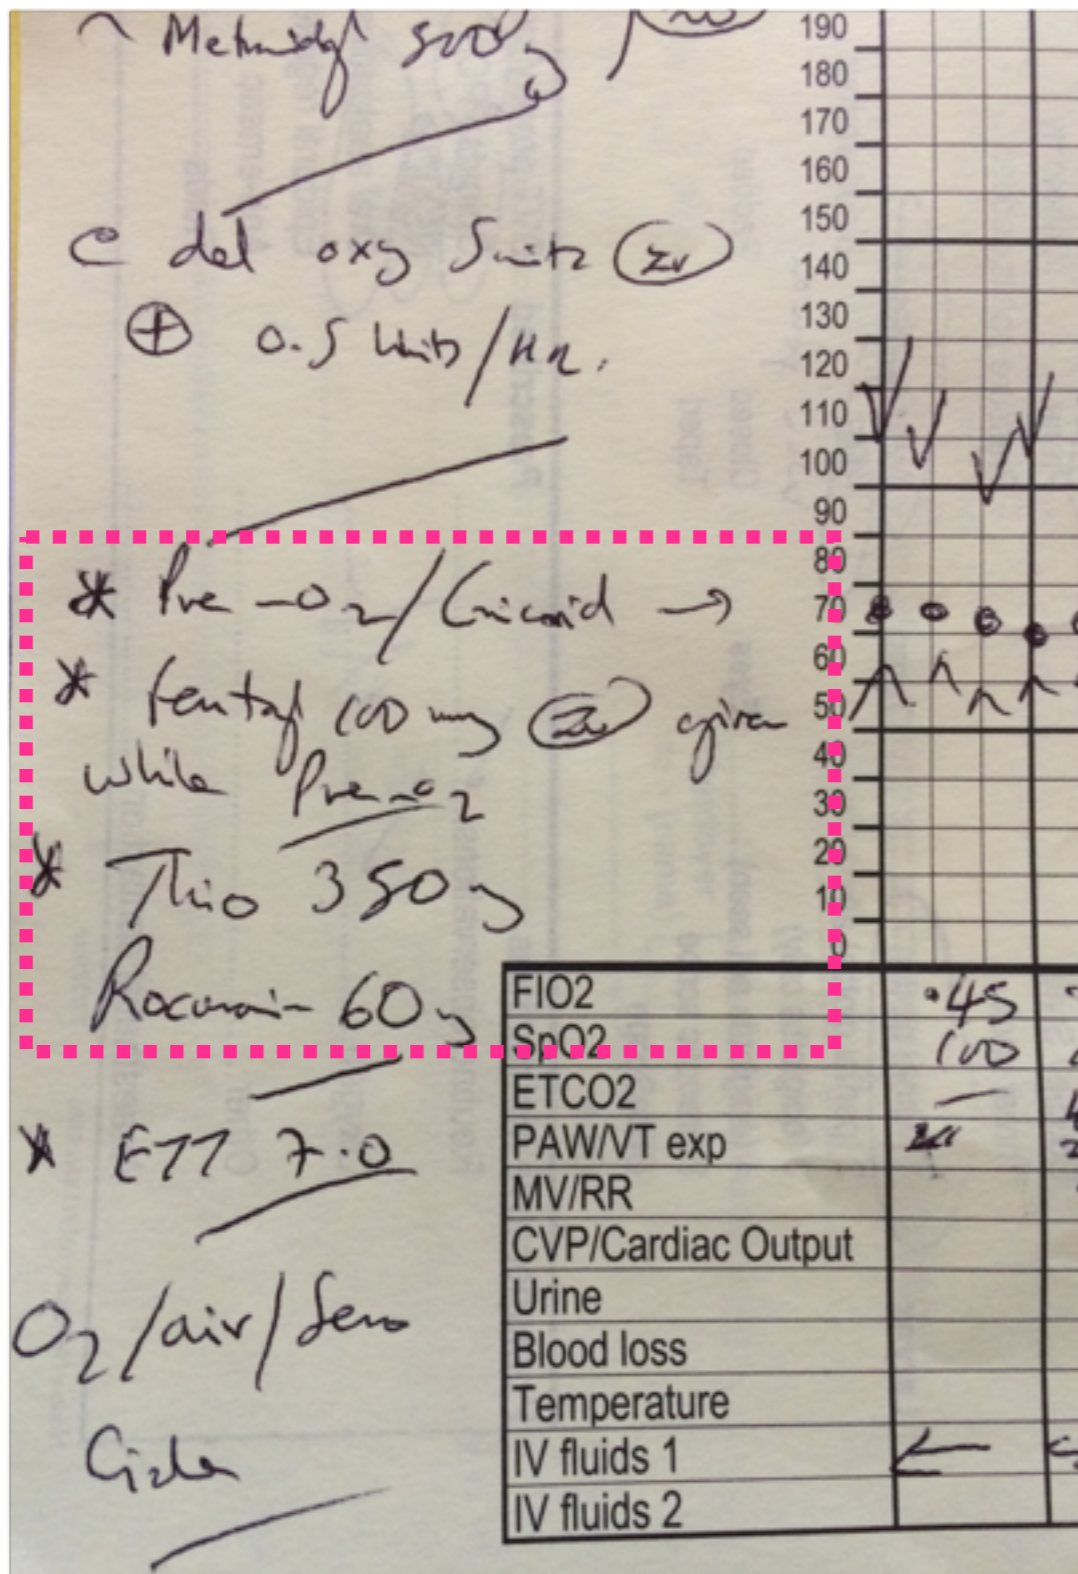 500
c del oxy 5 units IV
⊕ 0.5 Units/HR.
* Pre-O2/Cricoid →
* fentanyl 100 mcg IV given
while Pre-O2
* Thio 350 mg
Rocuronium 60 mg
* ETT 7.0
O2/air/Sevo
Circle
190
180
170
160
150
140
130
120
110
100
90
80
70
60
50
40
30
20
10
0
FIO2 .45
SpO2 100
ETCO2
PAW/VT exp
MV/RR
CVP/Cardiac Output
Urine
Blood loss
Temperature
IV fluids 1
IV fluids 2